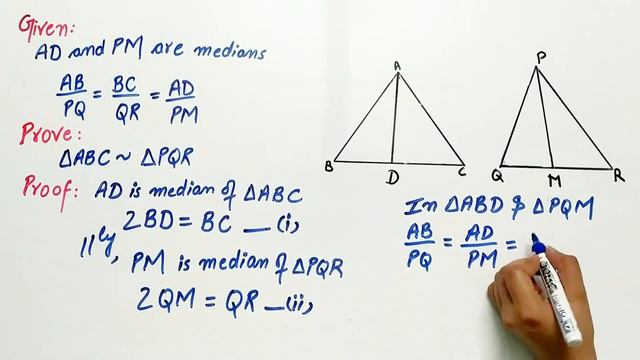 Given:
AD and PM are medians
AB/PQ = BC/QR = AD/PM
Prove:
△ABC ~ △PQR
Proof: AD is median of △ABC
2BD = BC __(i)
||ly, PM is median of △PQR
2QM = QR __(ii)
A
B D C
P
Q M R
In △ABD & △PQM
AB/PQ = AD/PM =